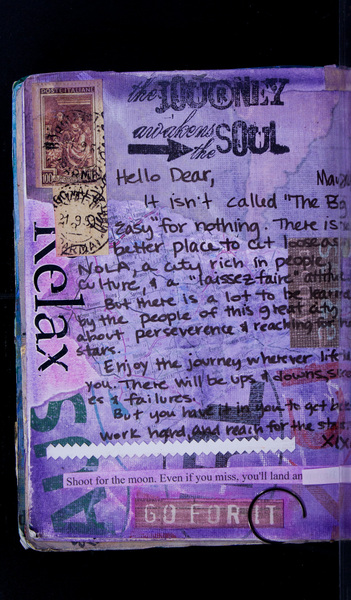 POSTE ITALIANE
the JOURNEY
awakens
the SOUL
Hello Dear,
It isn't called "The Big
Easy" for nothing. There is
better place to cut loose as
NoLA, a city rich in people,
culture, & a "laissez faire"
But there is a lot to be learned
by the people of this great city
about perseverence & reaching for
stars.
Enjoy the journey wherever
you. There will be ups & downs,
es & failures.
But you have it in you to get
work hard, and reach for the
XIX
Relax
Shoot for the moon. Even if you miss, you'll land
GO FOR IT